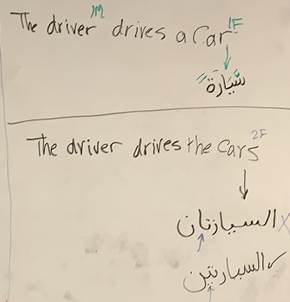 The driver M drives a Car 1F
سَيَّارَةً
The driver drives the Cars 2F
السيارتان X
السيارتين ✓